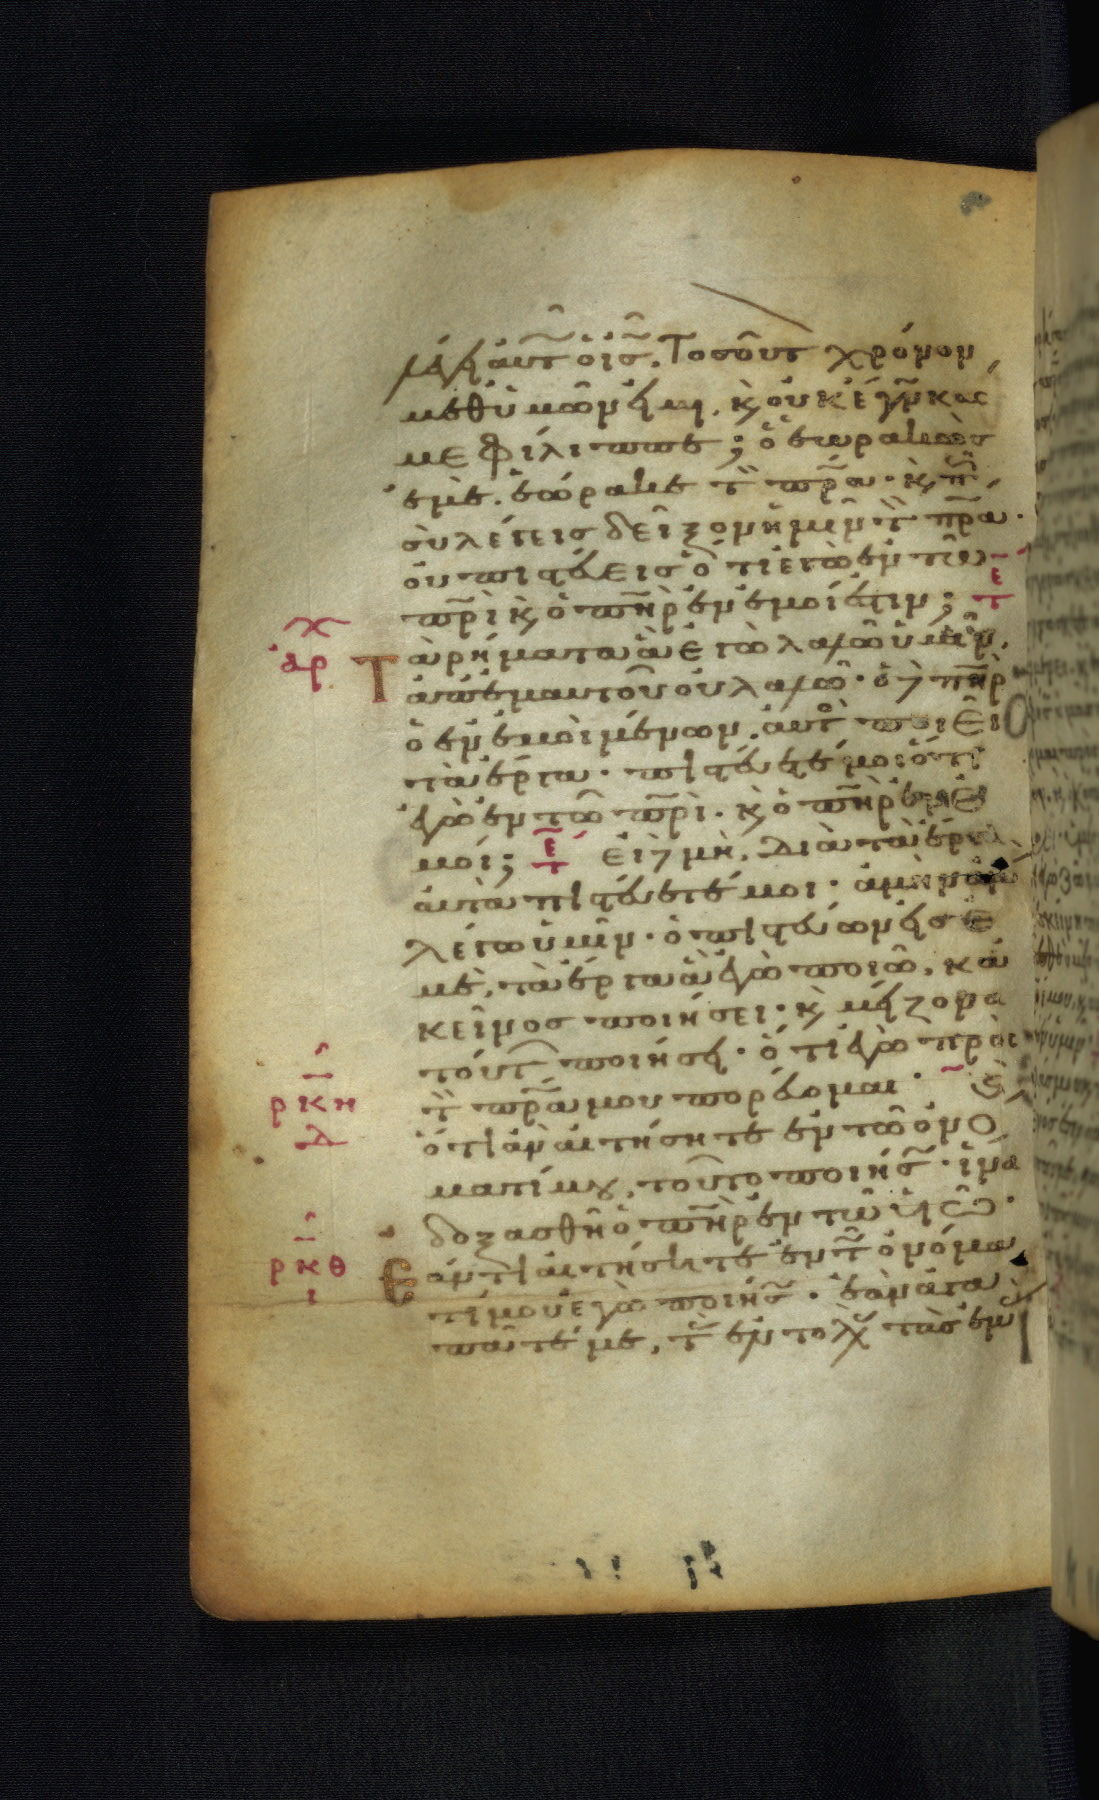 λέγει αὐτ ὁ ις. Τοσοῦτ χρόνον
μεθ ὑμῶν εἰμι, κ οὐκ ἔγνκας
με Φίλιππε; ὁ ἑωρακὼς
ἐμὲ, ἑώρακε τ πρα. κ π
σὺ λέγεις δεῖξον ἡμῖν τ πρα.
οὐ πιστεύεις ὅτι ἐγὼ ἐν τῶ
πρὶ κ ὁ πηρ ἐν ἐμοί ἐστιν;
Τὰ ρήματα ἃ ἐγὼ λαλῶ ὑμῖν,
ἀπ ἐμαυτοῦ οὐ λαλῶ. ὁ δ πηρ
ὁ ἐν ἐμοὶ μένων, αὐτὸ ποιεῖ
τὰ ἔργα. πιστεύετέ μοι ὅτι
ἐγὼ ἐν τῶ πρὶ. κ ὁ πηρ ἐν ἐ
μοί; εἰ δ μὴ, διὰ τὰ ἔργα
αὐτὰ πιστεύετέ μοι. ἀμὴν ἀμὴν
λέγω ὑμῖν. ὁ πιστεύων εἰς ἐ
μὲ, τὰ ἔργα ἃ ἐγὼ ποιῶ, κἀ
κεῖνος ποιήσει. κ μείζονα
τούτ ποιήσει. ὅτι ἐγὼ πρὸς
τ πρα μου πορεύομαι.
ὅτι ἂν αἰτήσητε ἐν τῶ ὀνό
ματί μου, τοῦτο ποιήσ. ἵνα
δοξασθῆ ὁ πηρ ἐν τῶ υἱῶ.
Ἐάν τι αἰτήσητε ἐν τ ὀνόμα
τί μου ἐγὼ ποιήσ. ἐὰν ἀγα
πᾶτέ με, τ ἐντολ τὰς ἐμ
ρκη
ρκθ
ι